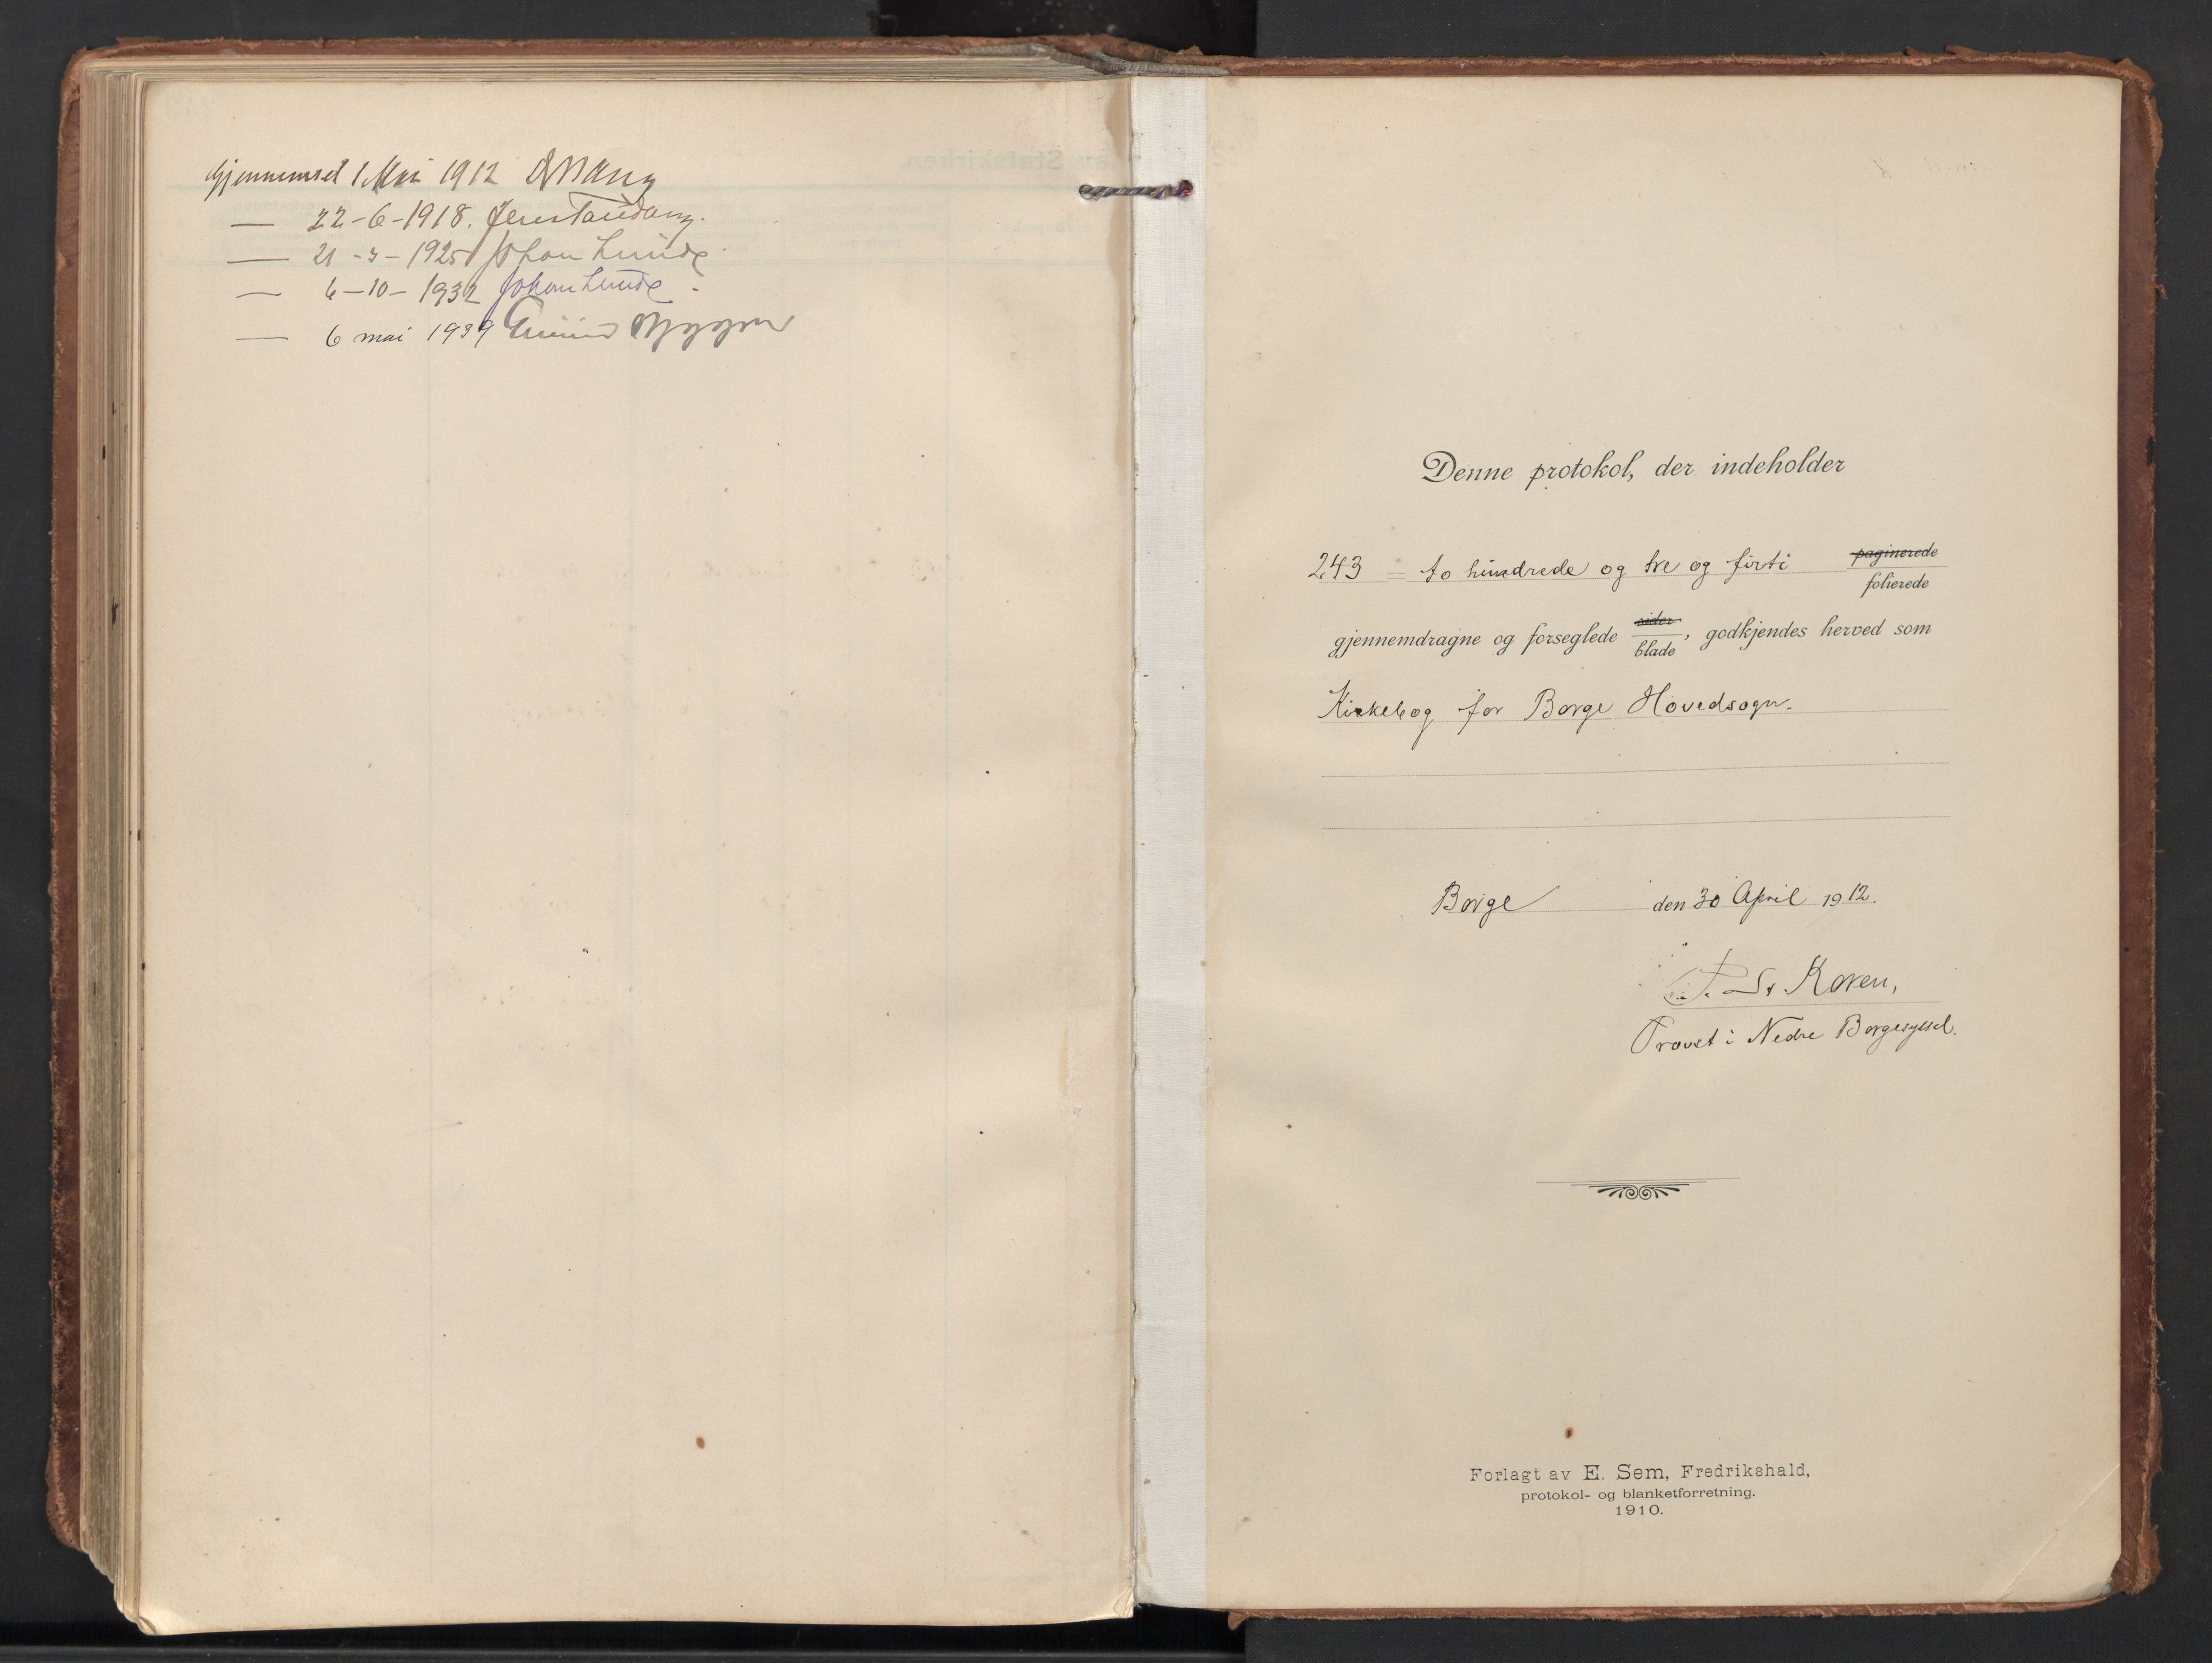 Gjennemset 1 Mai 1912
— 22-6-1918. Jens Tandberg.
— 21-3-1925 Johan Lunde
— 6-10-1932 Johan Lunde.
— 6 mai 1939
Denne protokol, der indeholder
243 = to hundrede og tre og førti paginerede
folierede
gjennemdragne og forseglede sider
blade, godkjendes herved som
Kirkebog for Borge Hovedsogn.
Borge den 30 April 1912.
Koren,
Provst i Nedre Borgesyssel.
Forlagt av E. Sem, Fredrikshald,
protokol- og blanketforretning.
1910.